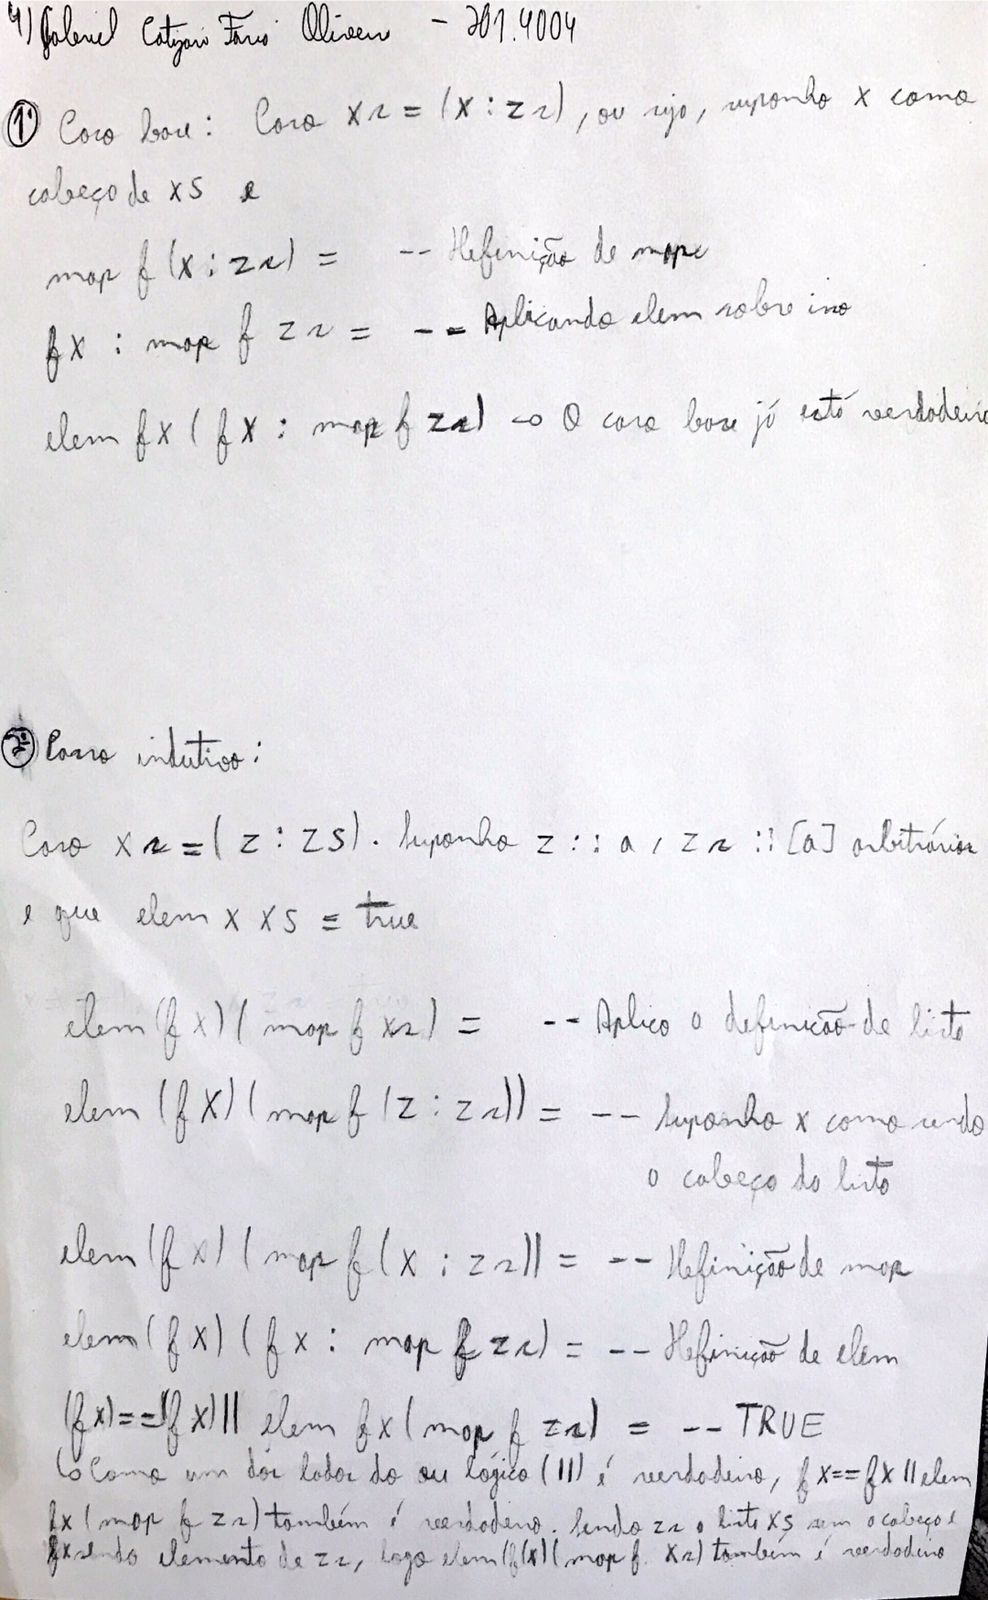 4) Gabriel Faria Oliveira - 201.4004
1º Caso base: Caso xs = (x : zs), ou seja, suponha x como
cabeça de xs e
map f (x : zs) = -- Definição de map
f x : map f zs = -- Aplicando elem sobre isso
elem f x ( f x : map f zs) -> O caso base já está verdadeiro
2º Passo indutivo:
Caso xs = ( z : zs). Suponha z :: a, zs :: [a] arbitrários
e que elem x xs = true
elem (f x) ( map f xs) = -- Aplico a definição de lista
elem (f x) ( map f (z : zs)) = -- Suponha x como sendo
a cabeça da lista
elem (f x) ( map f (x : zs)) = -- Definição de map
elem (f x) ( f x : map f zs) = -- Definição de elem
(f x) == (f x) || elem f x ( map f zs) = -- TRUE
↳ Como um dos lados do ou lógico (||) é verdadeiro, f x == f x || elem
f x ( map f zs) também é verdadeiro. Sendo zs a lista xs sem a cabeça e
f x sendo elemento de zs, logo elem (f (x) ( map f xs) também é verdadeiro